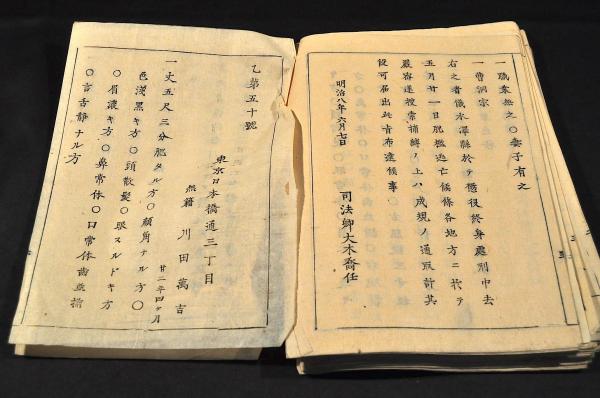 一職業無之〇妻子有之
一曹洞宗
右之者儀水澤縣於テ懲役終身處刑中去
五月廿一日脱檻逃亡候條各地方ニ於テ
嚴密速捜索補縛ノ上ハ成規ノ通取計其
段可届出此旨布達候事
明治八年六月七日 司法卿大木喬任
乙第五十號
東京日本橋通三丁目
無籍 川田萬吉
廿二年四ヶ月
一丈五尺三分肥タル方〇顔角ナル方〇
色淺黒キ方〇頭散髪〇眼スルドキ方
〇眉濃キ方〇鼻常体〇口常体歯並揃
〇言舌静ナル方